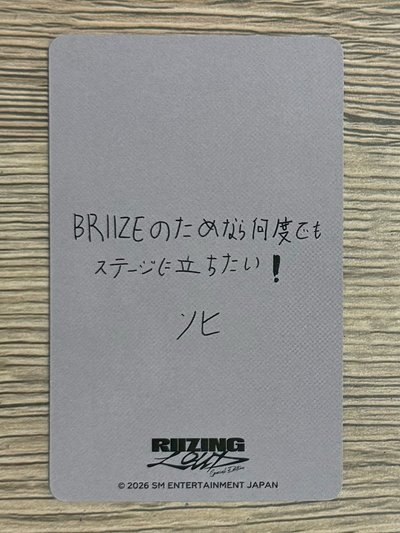 BRIIZEのためなら何度でも
ステージに立ちたい！
ソヒ
RIIZING
LOUD
Special Edition
© 2026 SM ENTERTAINMENT JAPAN